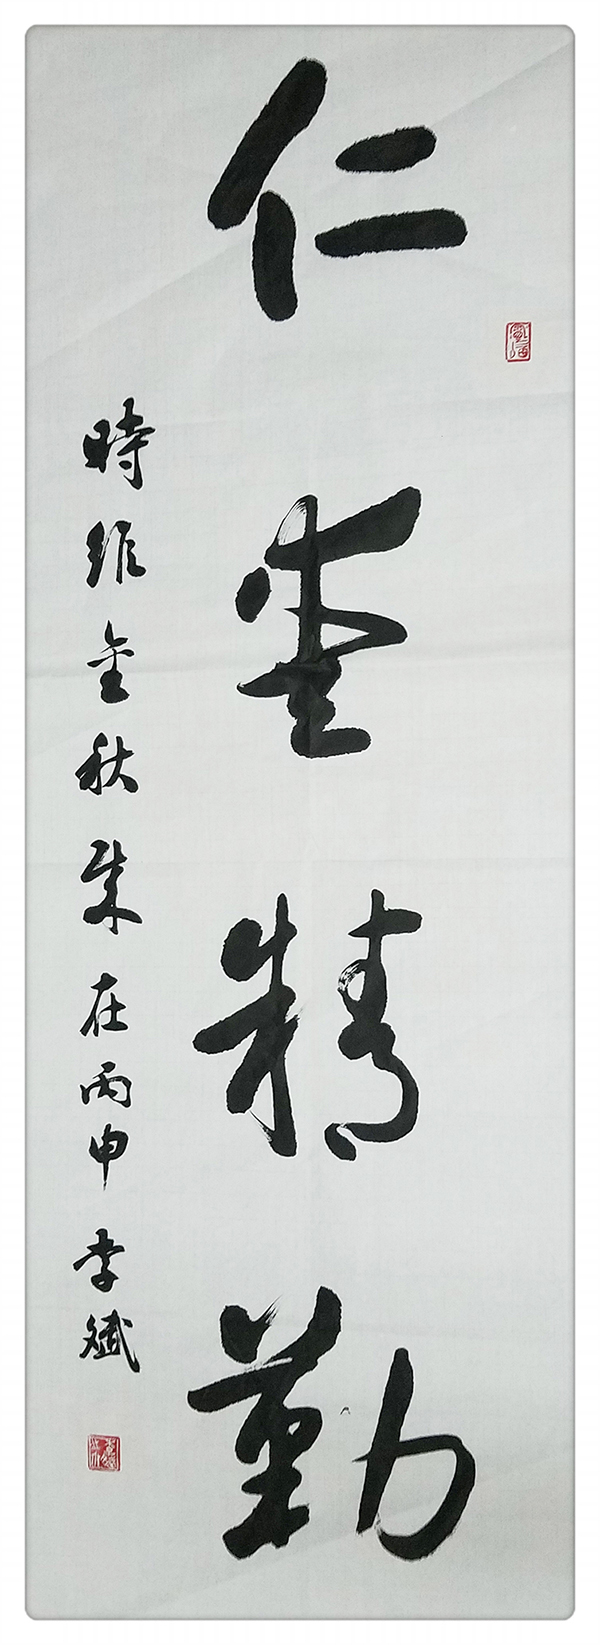 仁愛精勤
時維金秋歲在丙申 李斌